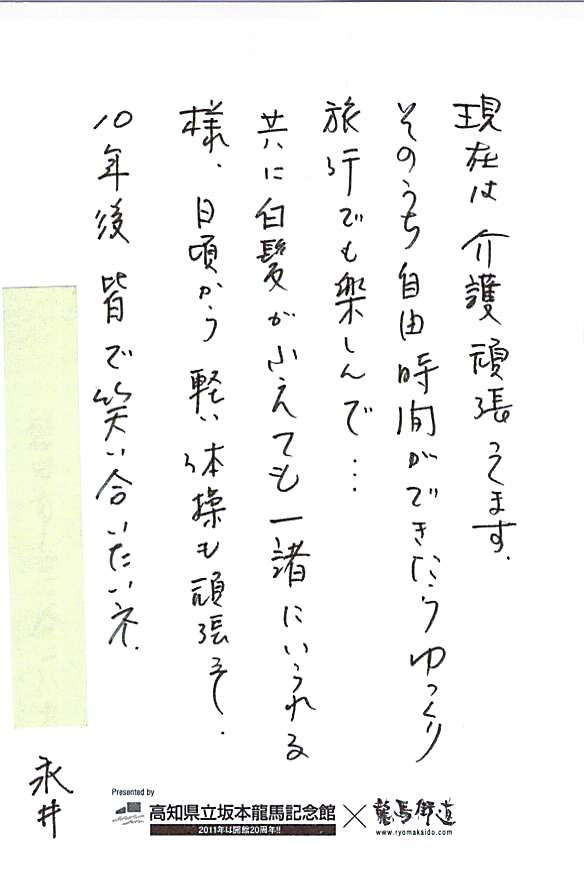 現在は介護頑張ってます.
そのうち自由時間ができたらゆっくり
旅行でも楽しんで…
共に白髪がふえても一諸にいられる
様、日頃から軽い体操も頑張るぞ.
10年後皆で笑い合いたいネ.
永井
Presented by
高知県立坂本龍馬記念館
2011年は開館20周年!!
×
龍馬街道
www.ryomakaido.com